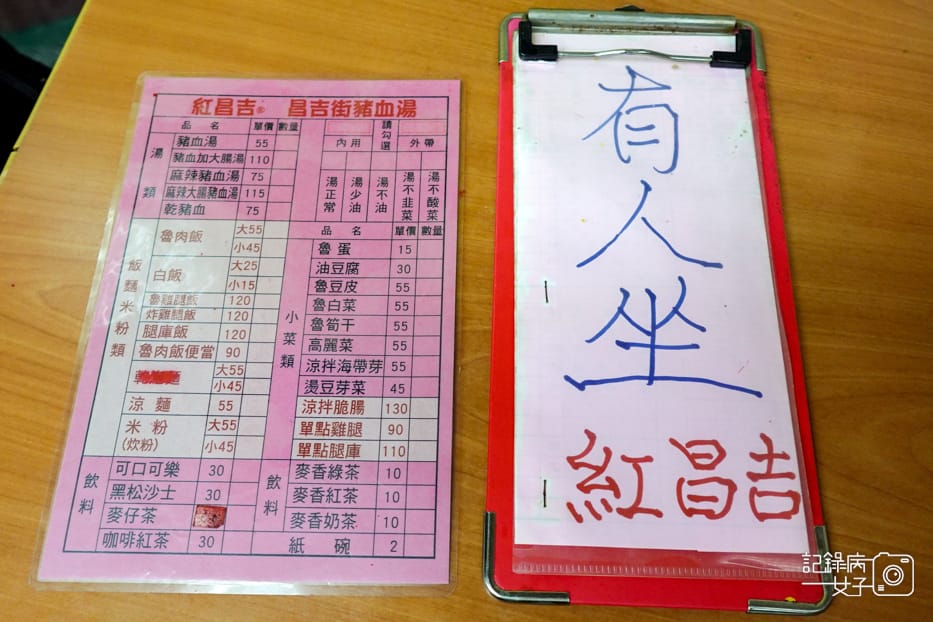 紅昌吉® 昌吉街豬血湯
品名 單價 數量
湯類
豬血湯 55
豬血加大腸湯 110
麻辣豬血湯 75
麻辣大腸豬血湯 115
乾豬血 75
請勾選
內用 外帶
湯正常 湯少油 湯不油 湯不韭菜 湯不酸菜
飯麵米粉類
魯肉飯 大55
小45
白飯 大25
小15
魯雞腿飯 120
炸雞腿飯 120
腿庫飯 120
魯肉飯便當 90
大55
小45
涼麵 55
米粉 大55
(炊粉) 小45
品名 單價 數量
小菜類
魯蛋 15
油豆腐 30
魯豆皮 55
魯白菜 55
魯筍干 55
高麗菜 55
涼拌海帶芽 55
燙豆芽菜 45
涼拌脆腸 130
單點雞腿 90
單點腿庫 110
飲料
可口可樂 30
黑松沙士 30
麥仔茶
咖啡紅茶 30
飲料
麥香綠茶 10
麥香紅茶 10
麥香奶茶 10
紙碗 2
有人坐
紅昌吉
記錄病
女子